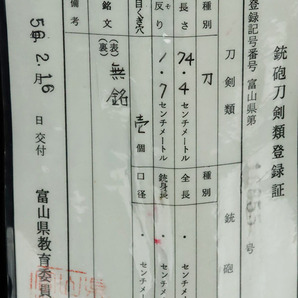 銃砲刀剣類登録証
登録記号番号 富山県第 号
刀剣類 銃砲
種別 刀 種別
長さ 74.4センチメートル 全長 ・ センチメ
反り 1.7センチメートル 銃身長 ・ センチメ
目くぎ穴 壱個 口径 ・ センチメ
銘文 (表) 無銘
(裏)
備考
50年2月16日交付
富山県教育委員